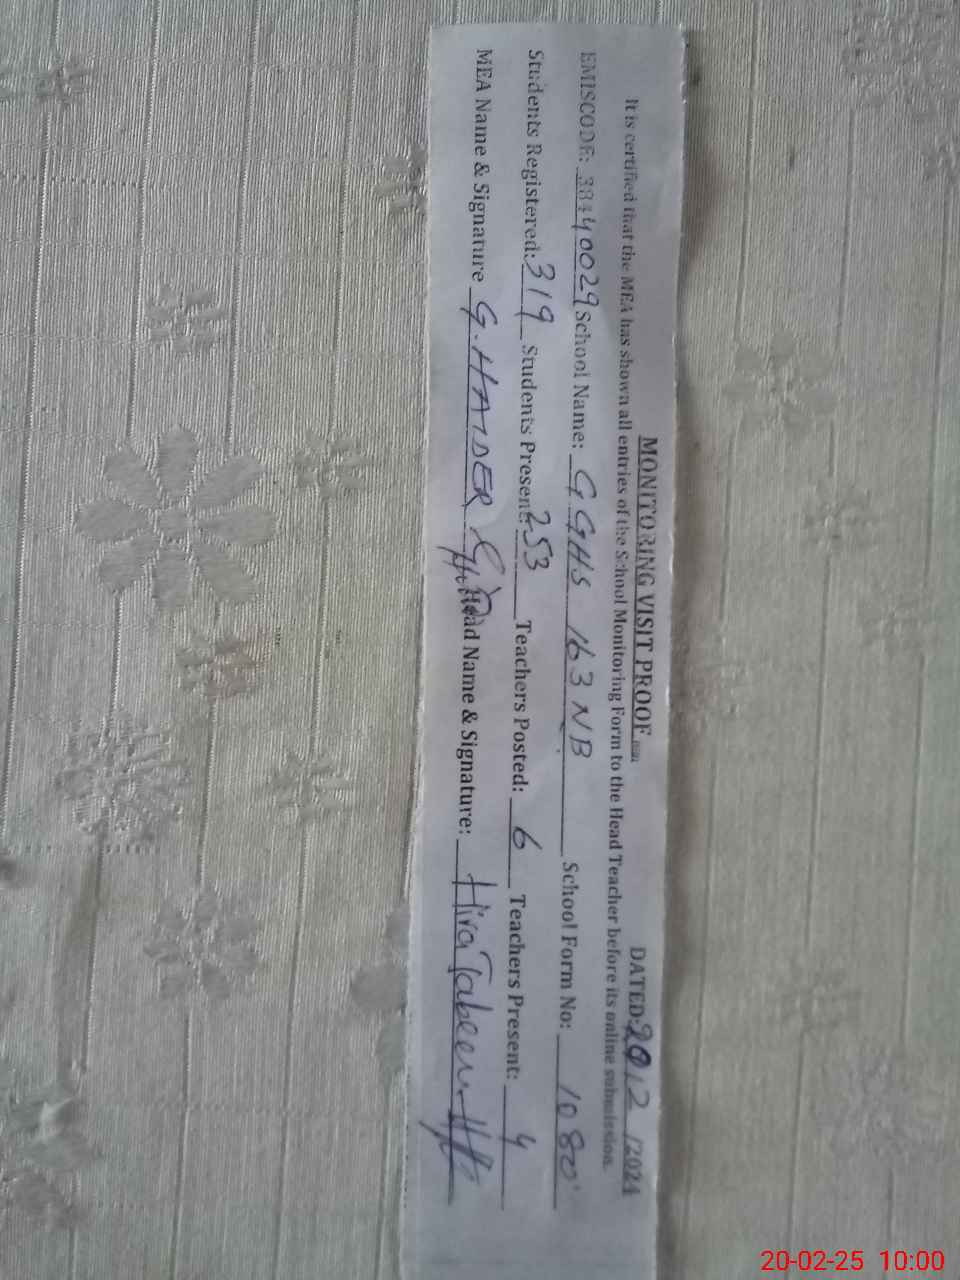 MONITORING VISIT PROOF
DATED: 20/2 /2024
It is certified that the MEA has shown all entries of the School Monitoring Form to the Head Teacher before its online submission.
EMISCODE: 38440029 School Name: GGHS 163 NB School Form No: 1080
Students Registered: 319 Students Present: 253 Teachers Posted: 6 Teachers Present: 4
MEA Name & Signature G. HAIDER Head Name & Signature: Hira Tabeen
20-02-25 10:00